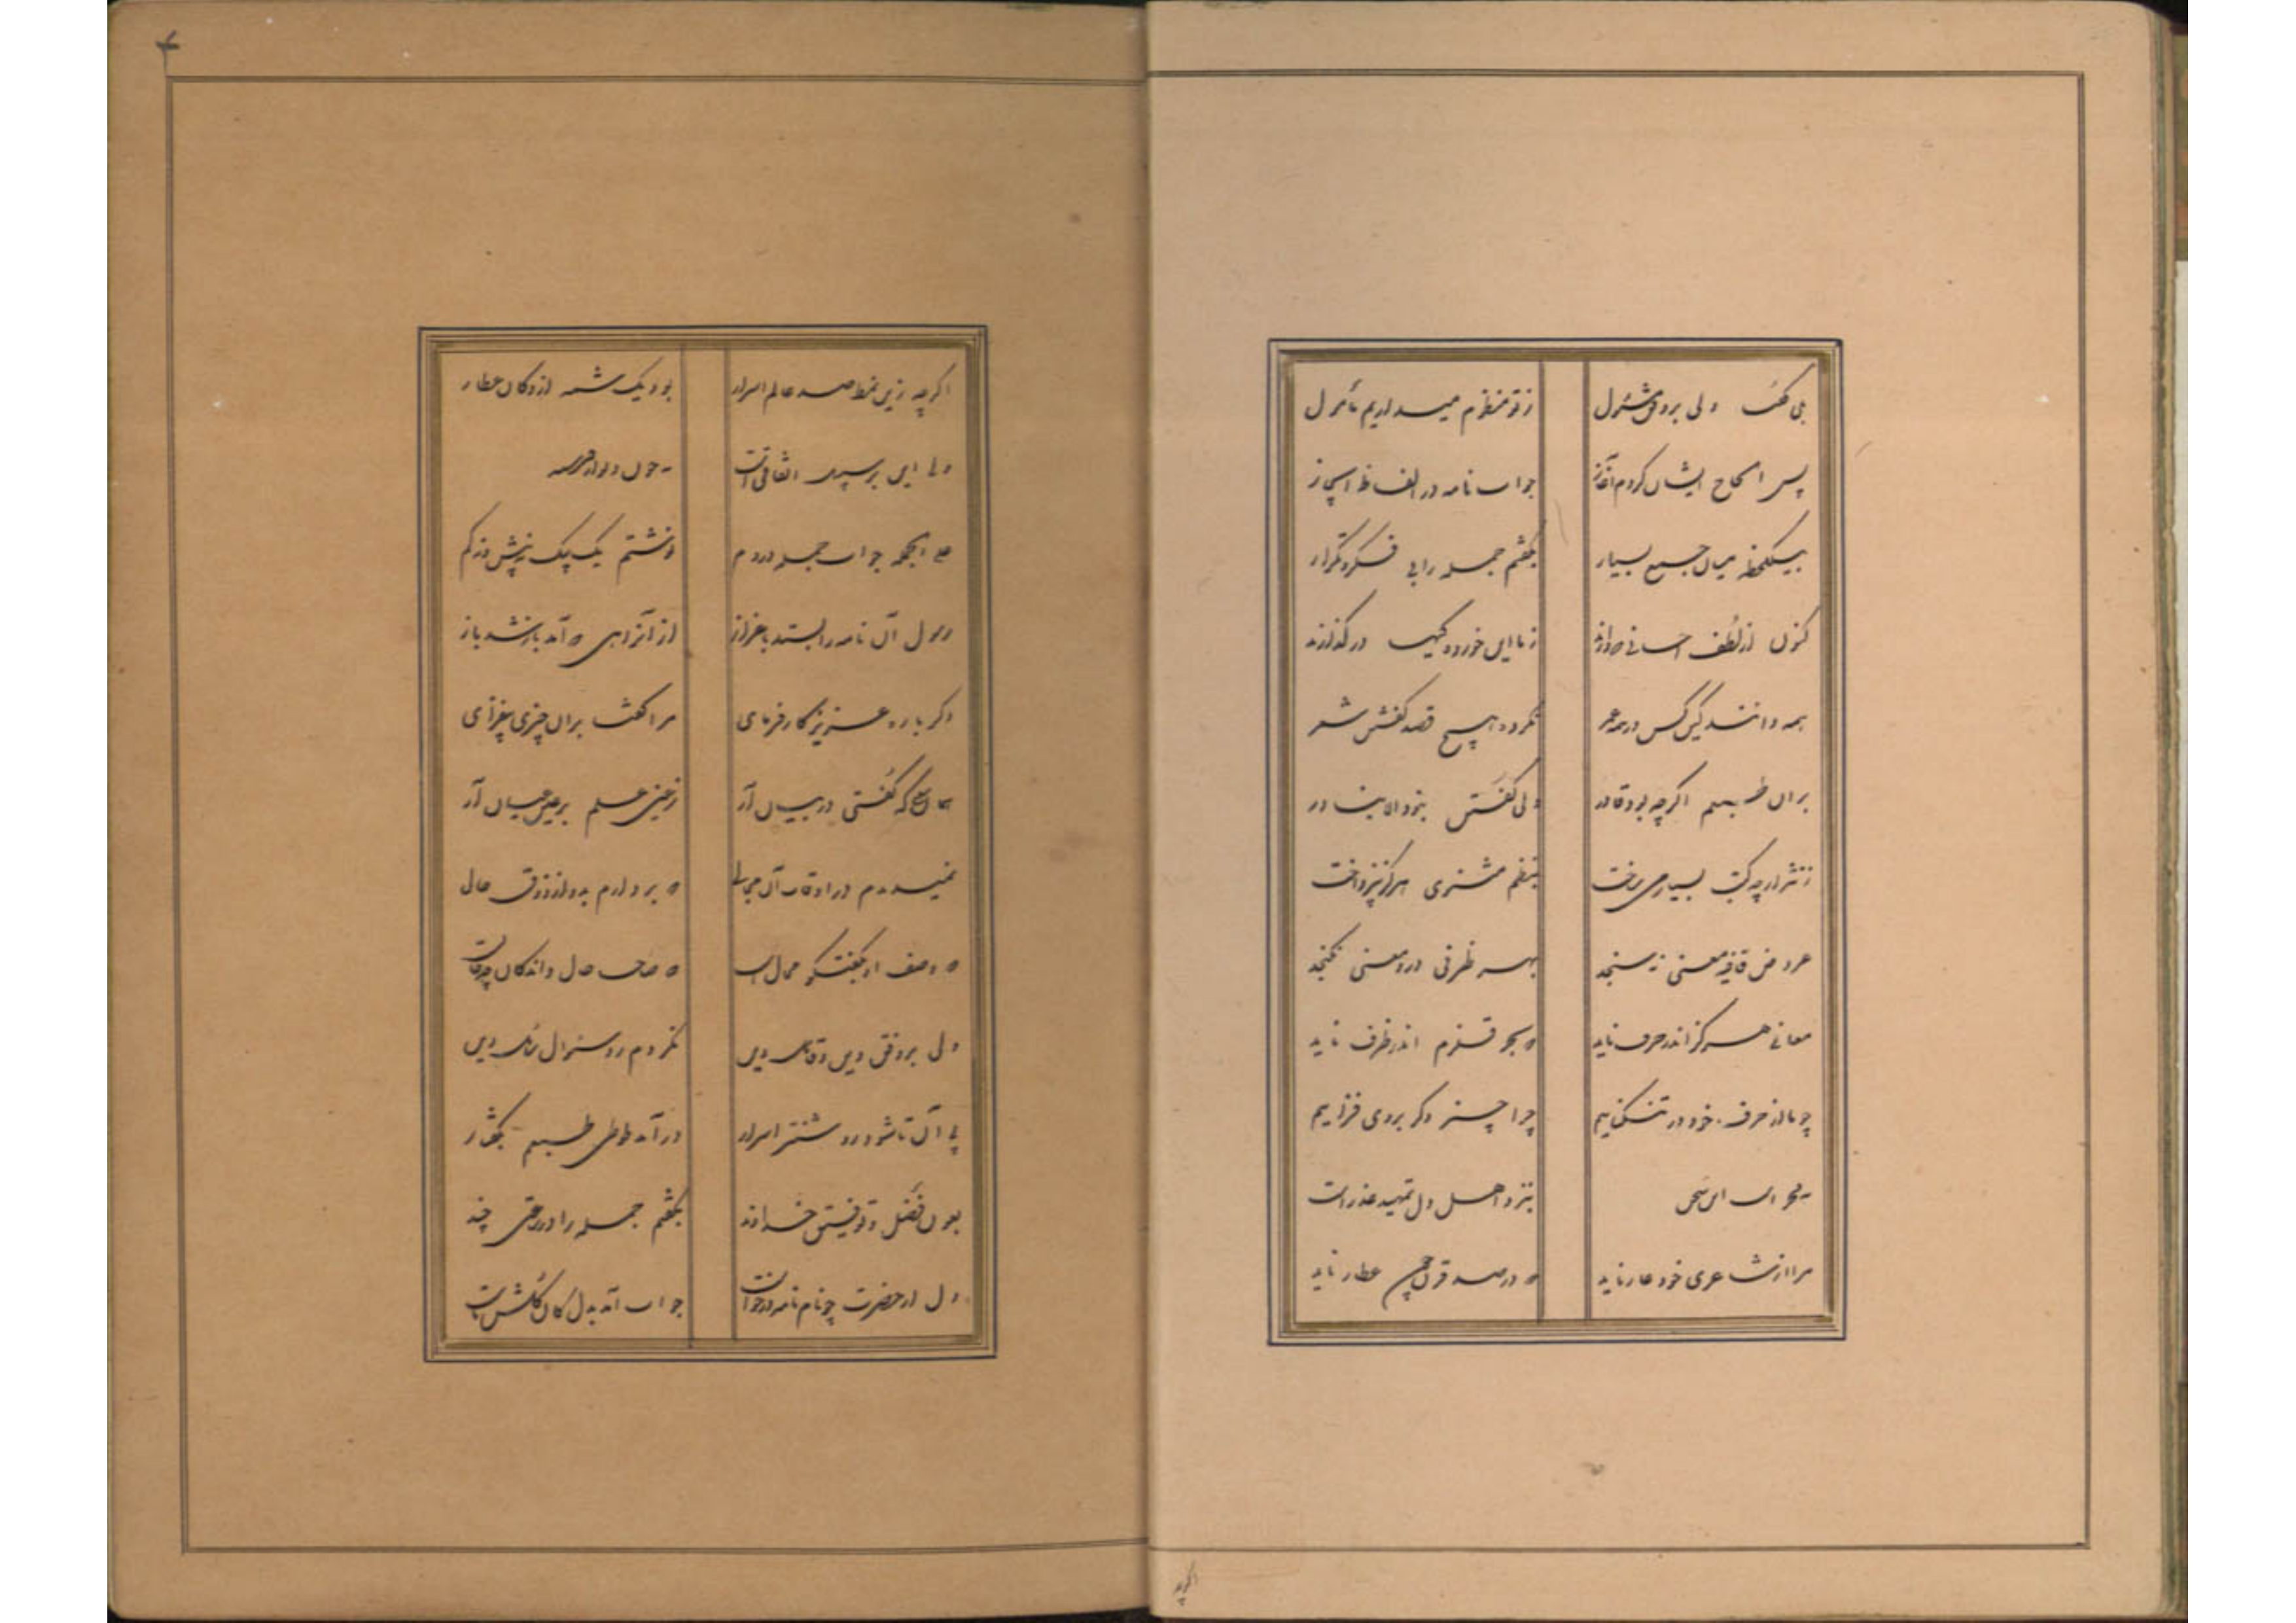 بلی گفتا ولی بر وفق مسئول ز تو منظوم میداریم مأمول
پس از الحاح ایشان کردم آغاز جواب نامه در الفاظ ایجاز
بیکلحظه میان جمع بسیار بگفتم جمله را بی فکر و تکرار
کنون از لطف احسانی که دارند ز ما این خورده گیها در گذارند
همه دانند کین کس در همه عمر نکرده هیچ قصد گفتن شعر
بران طبعم اگرچه بود قادر ولی گفتن نبود الا بنادر
ز نثر ارچه کتب بسیار می ساخت بنظم مثنوی هرگز نپرداخت
عروض قافیه معنی نسنجد بهر ظرفی درو معنی نگنجد
معانی هرگز اندر حرف ناید که بحر قلزم اندر ظرف ناید
چو ما از حرف خود در تنگناییم چرا چیز دگر بروی فزاییم
این سخن بنزد اهل دل تمهید عذر است
مرا از شاعری خود عار ناید که در صد قرن چون عطار ناید
اگرچه
اگرچه زین نمط صد عالم اسرار بود یک شمه از دکان عطار
ولی این بر سبیل اتفاق است چون دیو از فرشته
علی الجمله جواب جمله در دم نوشتم یک بیک نه بیش و نه کم
رسول آن نامه را بستد باعزاز از آنراهی که آمد باز شد باز
دگرباره عزیز کارفرمای مرا گفتا بران چیزی بیفزای
همان معنی که گفتی در بیان آر ز عین علم بر عین عیان آر
نمیدیدم در اوقات آن مجالی که پردازم بدو از ذوق حالی
که وصف او بگفتگو محال است که صاحب حال داند کان چه حال است
ولی بر وفق دین وقایل دین نکردم رد سئوال سائل دین
پی آن تا شود روشنتر اسرار درآمد طوطی طبعم بگفتار
بعون فضل و توفیق خداوند بگفتم جمله را در ساعتی چند
دل از حضرت چو نام نامه درخواست جواب آمد بدل کان گلشن ماست